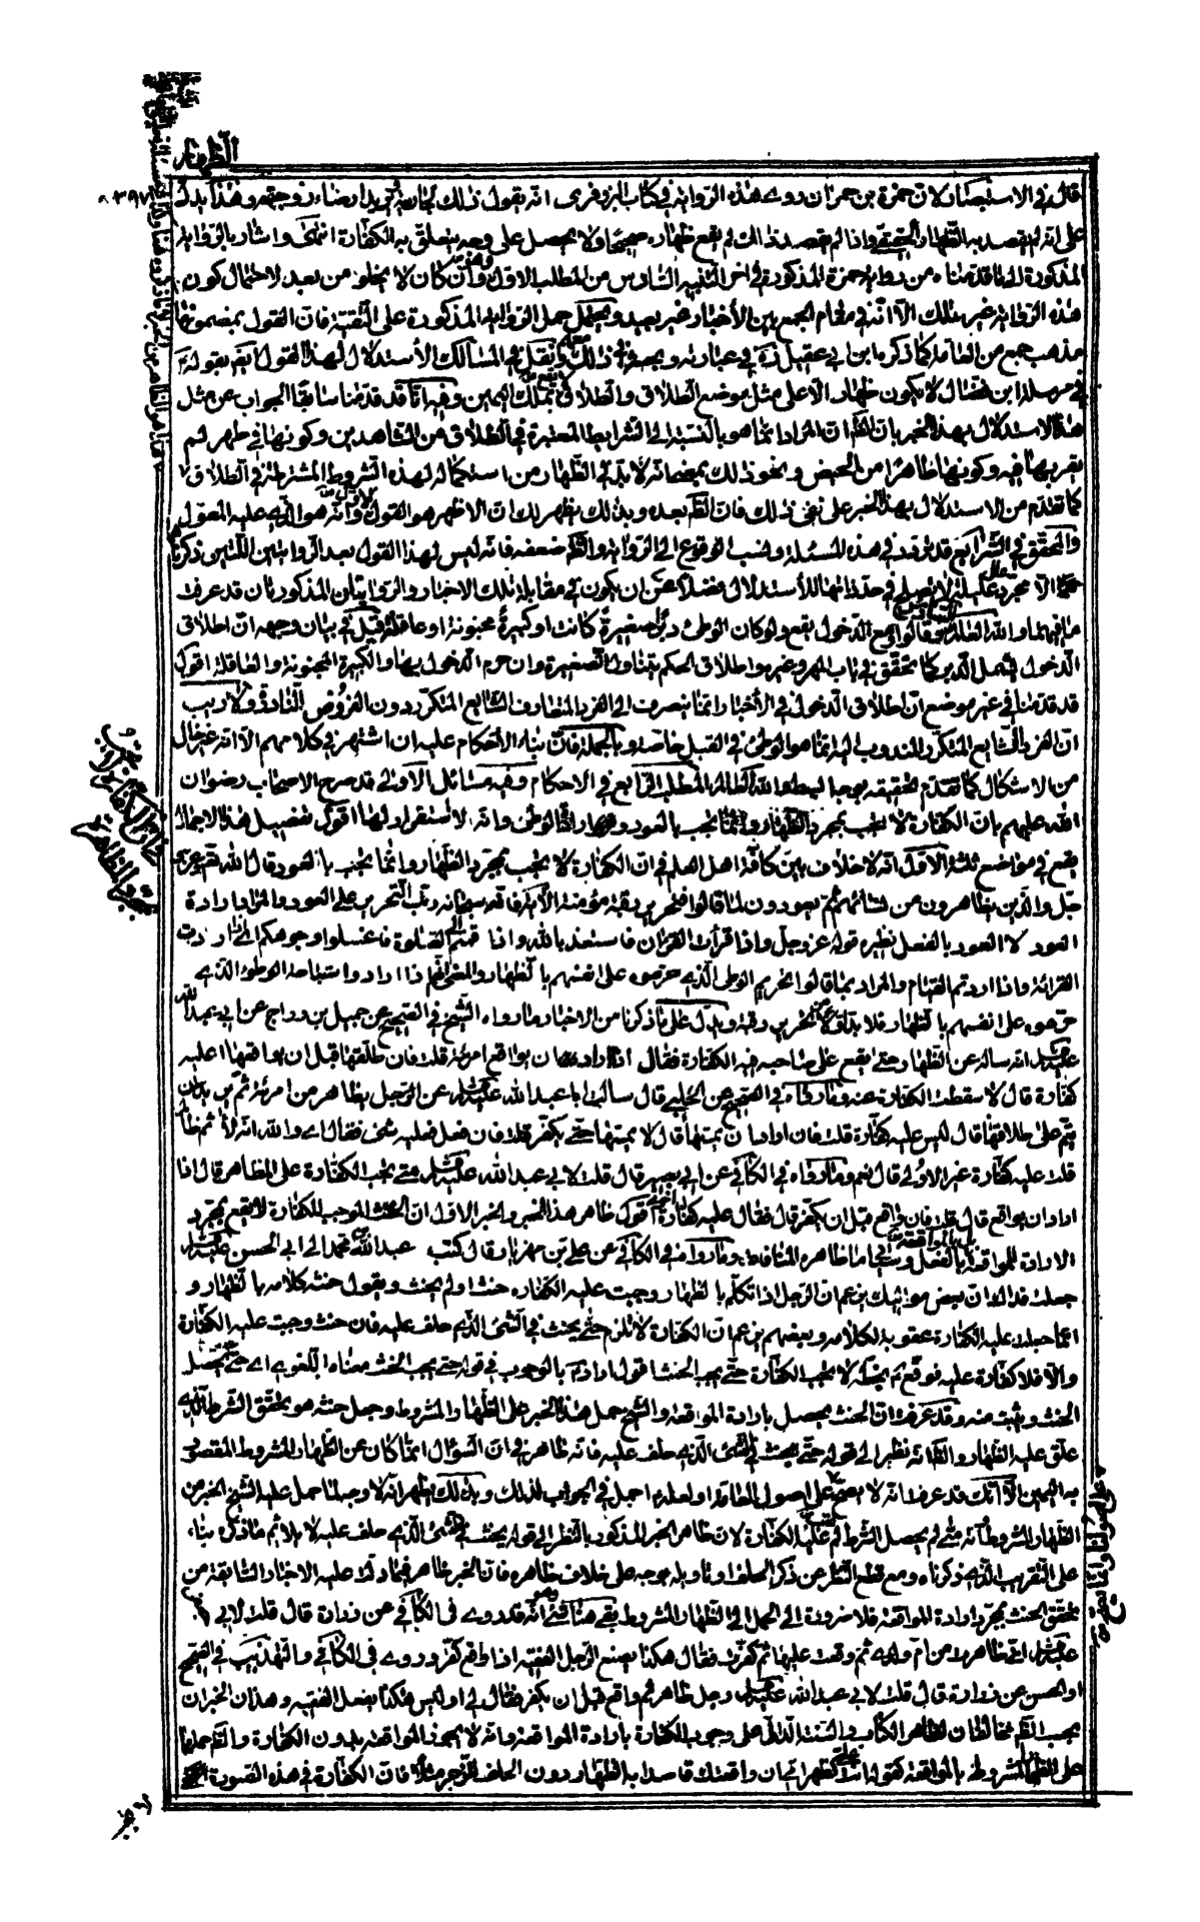 الظهار
قال في الاستبصار لان حمزة بن حمران روى هذه الرواية في كتاب البزوفرى انه يقول ذلك لجاريته يريد ارضاء زوجته وهذا يدل
على انه لم يقصد به الظهار الحقيقى واذا لم يقصد ذلك لم يقع ظهاره صحيحا ولا يحصل على وجه يتعلق به الكفارة انتهى واشار بالرواية
المذكورة الى ما قدمناه من رواية حمزة المذكورة في اخر التنبيه السادس من المطلب الاول وهو وان كان لا يخلو من بعد لاحتمال كون
هذه الرواية غير تلك الا انه في مقام الجمع بين الأخبار غير بعيد ويحتمل حمل الرواية المذكورة على التقية فان القول بمضمونها
مذهب جمع من العامة كما ذكره ابن ابى عقيل في عبارته
في مرسلة ابن فضال لا يكون ظهار الا على مثل موضع الطلاق والطلاق وفيه انا قد قدمنا سابقا الجواب عن مثل
هذا الاستدلال بهذا الخبر بان المراد انما هو بالنسبة الى الشرايط المعتبرة في الطلاق من الشاهدين وكونها في طهر لم
يقربها فيه وكونها طاهرا من الحيض ونحو ذلك بمعنى انه لا بد في الظهار من استكماله لهذه الشروط المشترطة في الطلاق لا
كما تقدم من الاستدلال بهذا الخبر على نفى ذلك فان الظ بعده وبذلك يظهر لك ان الاظهر هو القول الاول وانه هو الذى عليه المعول
والمحقق في الشرايع قد تردد في هذه المسئلة ونسب الوقوع الى الرواية والظ ضعفه فانه ليس لهذا القول بعد الروايتين اللتين ذكرناهما
الا مجرد لا تصلح في حد ذاتها للأستدلال فضلا عن ان يكون في مقابلة تلك الاخبار والروايتان المذكورتان قد عرفت
ما فيهما والله العالم قالوا ومع الدخول يقع ولو كان الوطئ دبرا صغيرة كانت او كبيرة مجنونة او عاقلة قيل في بيان وجهه ان اطلاق
الدخول يشمل الدبر كما تحقق في باب المهر وغيره واطلاق الحكم يتناول الصغيرة وان حرم الدخول بها والكبيرة المجنونة والعاقلة اقول
قد قدمنا في غير موضع ان اطلاق الدخول في الأخبار انما ينصرف الى الفرد المتعارف الشايع المتكرر دون الفروض النادرة ولا ريب
ان الفرد الشايع المتكرر المندوب اليه انما هو الوطئ في القبل خاصة وبالجملة فان بناء الأحكام عليه ان اشتهر في كلامهم الا انه غير خال
من الاشكال كما تقدم تحقيقه والله العالم المطلب الرابع في الاحكام وفيه مسائل الأولى قد صرح الاصحاب رضوان
الله عليهم بان الكفارة لا تجب بمجرد الظهار وانما تجب بالعود وهو ارادة الوطئ وانه لا استقرار لها اقول تفصيل هذا الاجمال
يقع في مواضع ثلثة الاول انه لا خلاف بين كافة اهل العلم في ان الكفارة لا تجب بمجرد الظهار وانما تجب بالعود قال الله عز و
جل والذين يظاهرون من نسائهم ثم يعودون لما قالوا فتحرير رقبة مؤمنة الآية فانه سبحانه رتب التحرير على العود والمراد ارادة
العود لا العود بالفعل نظيره قوله عز وجل واذا قرأت القران فاستعذ بالله واذا قمتم الى الصلوة فاغسلوا وجوهكم اى اذا اردت
القرائة واذا اردتم القيام والمراد بما قالوا تحريم الوطى الذى حرموه على انفسهم بالظهار والمعنى انهم اذا ارادوا استباحة الوطؤ الذى
حرموه على انفسهم بالظهار فلا بد اولا من تحرير رقبة ويدل على ما ذكرنا من الاخبار ما رواه الشيخ في الصحيح عن جميل بن دراج عن ابى عبد الله
عليه السلام انه ساله عن الظهار متى يقع على صاحبه فيه الكفارة فقال اذا اراد ان يواقع امرأته قلت فان طلقها قبل ان يواقعها اعليه
كفارة قال لا سقطت الكفارة عنه وما رواه في الصحيح عن الحلبى قال سألت ابا عبد الله عليه السلام عن الرجل يظاهر من امرأته ثم يريد ان
يتم على طلاقها قال ليس عليه كفارة قلت فان اراد ان يمسها قال لا يمسها حتى يكفر قلت فان فعل فعليه شىء فقال اى والله انه لآثم ظالم
قلت عليه كفارة غير الأولى قال نعم وما رواه في الكافى عن ابى بصير قال قلت لابى عبد الله عليه السلام متى تجب الكفارة على المظاهر قال اذا
اراد ان يواقع قال قلت فان واقع قبل ان يكفر قال فقال عليه كفارة اخرى اقول ظاهر هذا الخبر والخبر الاول ان الحنث الموجب للكفارة لا يقع بمجرد
الارادة للمواقعة بل بالمواقعة بالفعل وسيجئ ما ظاهره المنافاة وما رواه في الكافى عن على بن مهزيار قال كتب عبد الله بن محمد الى ابى الحسن عليه السلام
جعلت فداك ان بعض مواليك يزعم ان الرجل اذا تكلم بالظهار وجبت عليه الكفاره حنث او لم يحنث ويقول حنثه كلامه بالظهار و
انما جعلت عليه الكفارة عقوبة لكلامه وبعضهم يزعم ان الكفارة لا تلزم حتى يحنث في الشئ الذى حلف عليه فان حنث وجبت عليه الكفارة
والا فلا كفارة عليه فوقع بخطه لا تجب الكفارة حتى يجب الحنث اقول اراد بالوجوب في قوله حتى يجب الحنث معناه اللغوى اى حتى يحصل
الحنث ويثبت منه وقد عرفت ان الحنث يحصل بارادة المواقعة والشيخ حمل هذا الخبر على الظهار المشروط وجعل حنثه هو تحقق الشرط الذى
علق عليه الظهار والظ انه نظر الى قوله حتى يحنث في الشئ الذى حلف عليه فانه ظاهر في ان السؤال انما كان عن الظهار المشروط المقصود
به اليمين الا انك قد عرفت انه لا يصح على اصول العامة ولعله اجمل في الجواب لذلك وبذلك يظهر انه لا وجه لما حمل عليه الشيخ الخبر من
الظهار المشروط وانه متى لم يحصل الشرط لم تجب عليه الكفارة لان ظاهر الخبر المذكور بالنظر الى قوله يحنث في الشئ الذى حلف عليه لا يلائم ما ذكره بناء
على التقريب الذى ذكرناه ومع قطع النظر عن ذكر الحلف وتاويله بوجه على خلاف ظاهره فان الخبر ظاهر فيما دلت عليه الاخبار السابقة من
تحقق الحنث بمجرد ارادة المواقعة فلا ضرورة الى الحمل الى الظهار المشروط بقى هنا شئ وهو انه قد روى في الكافى عن زرارة قال قلت لابى
عليه السلام انى ظاهرت من ام ولدى ثم وقعت عليها ثم كفرت فقال هكذا يصنع الرجل الفقيه اذا واقع كفر وروى في الكافى والتهذيب في الصحيح
او الحسن عن زرارة قال قلت لابى عبد الله عليه السلام رجل ظاهر ثم واقع قبل ان يكفر فقال لى اوليس هكذا يفعل الفقيه وهذان الخبران
بحسب الظ مخالفان لظاهر الكتاب والسنة الدالين على وجوب الكفارة بارادة المواقعة وانه لا يجوز المواقعة بدون الكفارة والظ حملهما
على الظهار المشروط بالمواقعة كقوله انت على كظهر امى ان واقعتك قاصدا به الظهار دون الحلف للزجر مثلا فان الكفارة في هذه الصورة